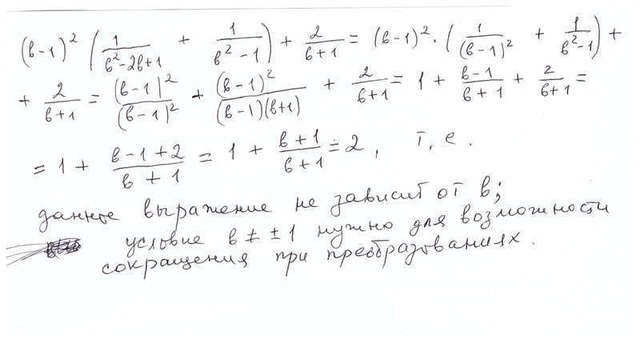 (в-1)² (1/(в²-2в+1) + 1/(в²-1)) + 2/(в+1) = (в-1)² · (1/(в-1)² + 1/(в²-1)) +
+ 2/(в+1) = (в-1)²/(в-1)² + (в-1)²/((в-1)(в+1)) + 2/(в+1) = 1 + (в-1)/(в+1) + 2/(в+1) =
= 1 + (в-1+2)/(в+1) = 1 + (в+1)/(в+1) = 2, т.е.
данное выражение не зависит от в;
условие в ≠ ±1 нужно для возможности
сокращения при преобразованиях.